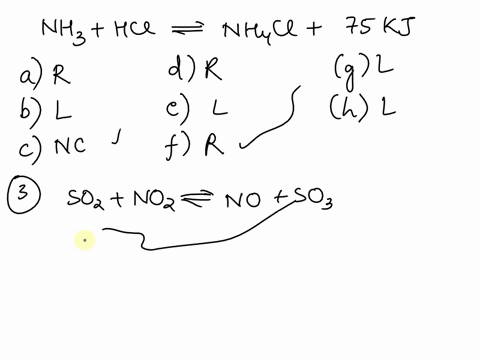 NH3 + HCl ⇌ NH4Cl + 75 KJ
a) R d) R (g) L
b) L e) L (h) L
c) NC f) R
3 SO2 + NO2 ⇌ NO + SO3